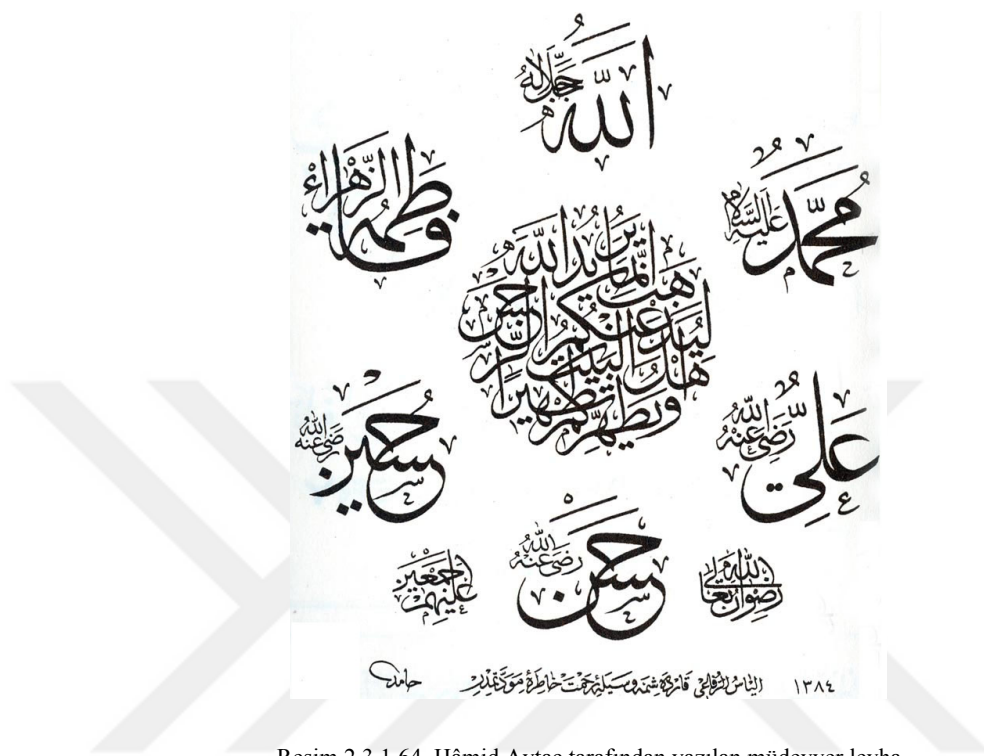 الله جل جلاله
محمد عليه السلام
فاطمة الزهراء
إنما يريد الله
ليذهب عنكم الرجس
أهل البيت
ويطهركم تطهيرا
علي رضي الله عنه
حسين رضي الله عنه
حسن رضي الله عنه
رضوان الله تعالى
عليهم اجمعين
١٣٨٤ الياس الرفاعي وسيلۀ رحمت خاطرۀ مودتمدر حامد
Resim 2.3.1.64. Hâmid Aytaç tarafından yazılan müdevver levha